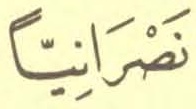 نَصْرَانِيّاً